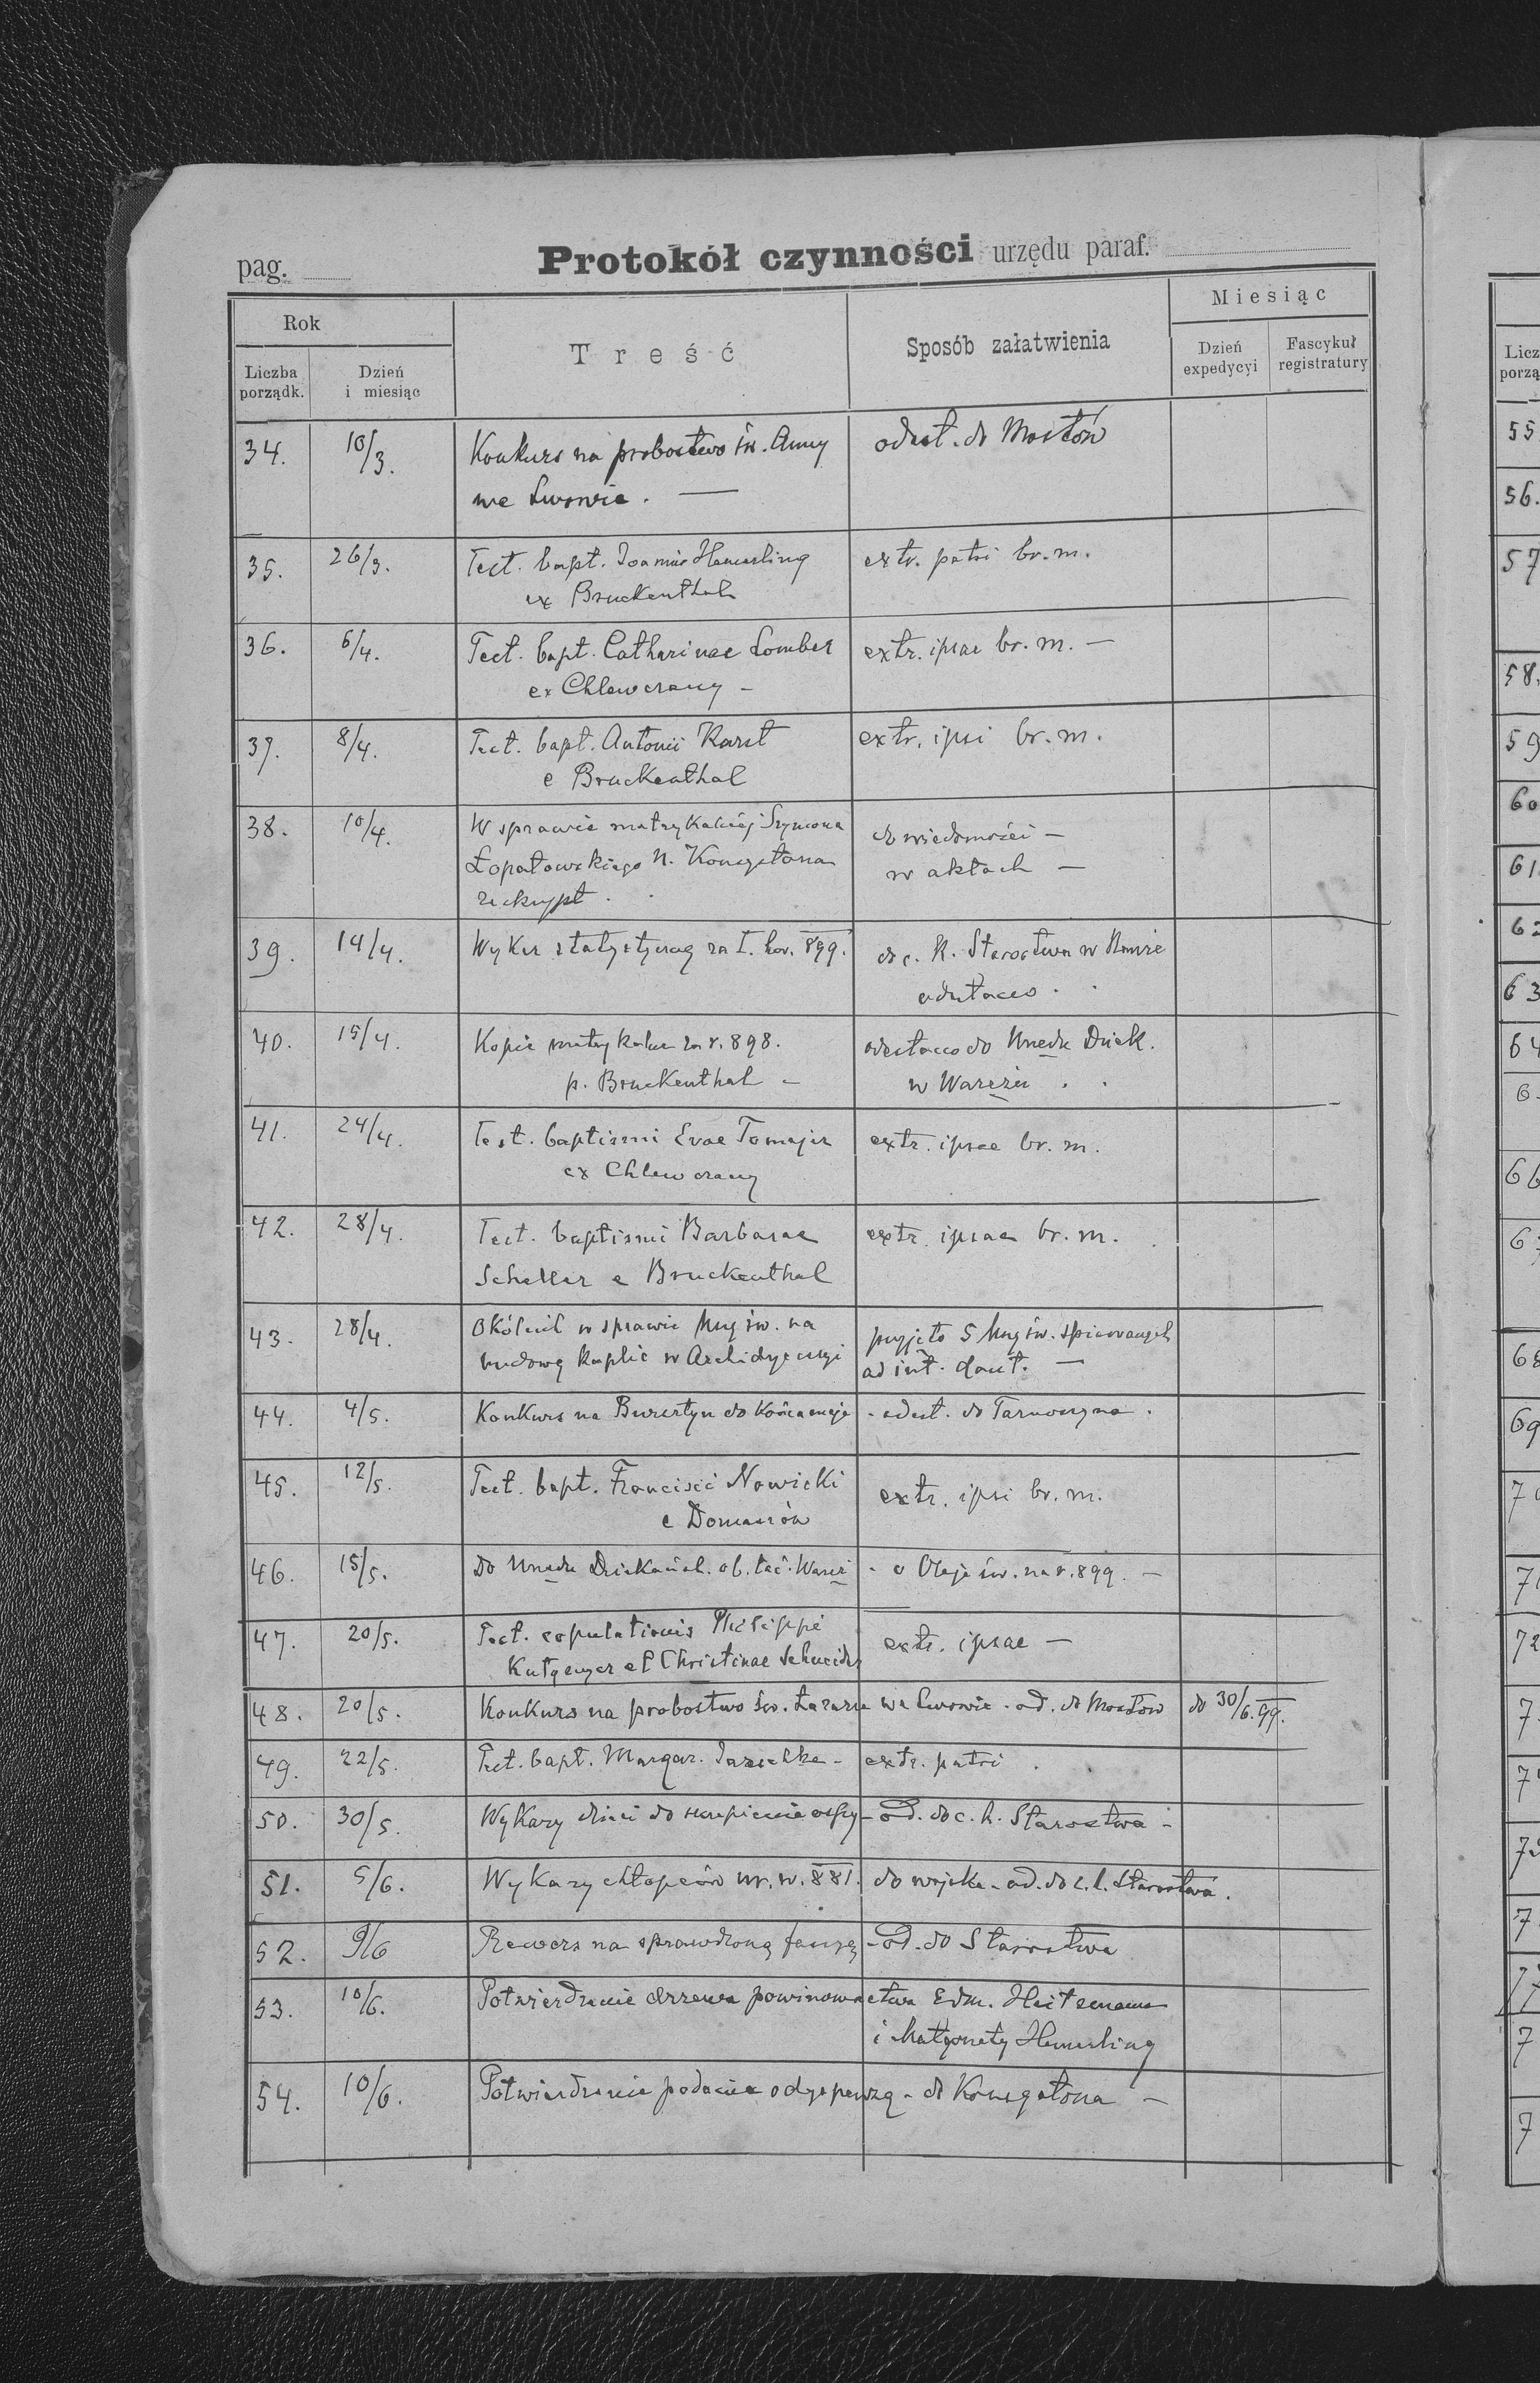 pag.
Protokół czynności urzędu paraf.
Rok
Treść
Sposób załatwienia
Miesiąc
Liczba porządk.
Dzień i miesiąc
Dzień expedycyi
Fascykuł registratury
34. 10/3. Konkurs na probostwo św. Anny odesł. do Mostów
we Lwowie. —
35. 26/3. Test. bapt. Joannis Hemerling extr. patri br. m.
ex Bruckenthal
36. 6/4. Test. bapt. Catharinae Lomber extr. ipsae br. m. —
ex Chlewczany -
37. 8/4. Test. bapt. Antonii Karst extr. ipsi br. m.
e Bruckenthal
38. 10/4. W sprawie matrykalnej Szymona do wiadomości —
Łopatowskiego N. Konsystorza w aktach —
reskrypt.
39. 14/4. Wykaz statystyczny za I. kw. 899. do c. k. Starostwa w Rawie
odesłano.
40. 15/4. Kopie matrykalne za r. 898. odesłano do Urzędu Dziek.
p. Bruckenthal - w Warężu.
41. 24/4. Test. baptismi Evae Tomajer extr. ipsae br. m.
ex Chlewczany
42. 28/4. Test. baptismi Barbarae extr. ipsae br. m.
Scheller e Bruckenthal
43. 28/4. Okólnik w sprawie Mszy św. na przyjęto 5 Mszy św. śpiewanych
budowę kaplic w Archidyecezyi ad int. —
44. 4/5. Konkurs na Bursztyn do końca maja - odesł. do Tarnoszyna.
45. 12/5. Test. bapt. Francisci Nowicki extr. ipsi br. m.
e Domaszów
46. 15/5. Do Urzędu Dziekańsk. ob. łać. Waręż - o Oleje św. na r. 899. —
47. 20/5. Test. copulationis Philippi extr. ipsae —
et Christinae Schneider
48. 20/5. Konkurs na probostwo św. Łazarza we Lwowie - od. do Mostów do 30/6. 99.
49. 22/5. Test. bapt. Margar. Jaeschke - extr. patri.
50. 30/5. Wykazy dzieci do szczepienia ospy - od. do c. k. Starostwa -
51. 5/6. Wykazy chłopców ur. w. 881. do wojska - od. do c. k. Starostwa.
52. 9/6 Rewers na sprawdzoną fassyę - od. do Starostwa
53. 10/6. Potwierdzenie drzewa powinowactwa Edm. Heitzmana
i Małgorzaty Hemerling
54. 10/6. Potwierdzenie podania o dyspenzę - do Konsystorza —
Licz
porzą
55
56.
57
58.
59
60
61
62
63
64
66
68
69
71
72